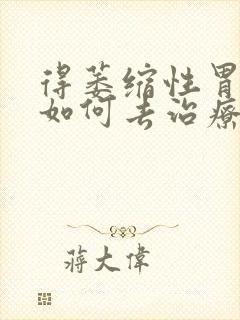 得萎缩性胃
如何去治療
蒋大偉